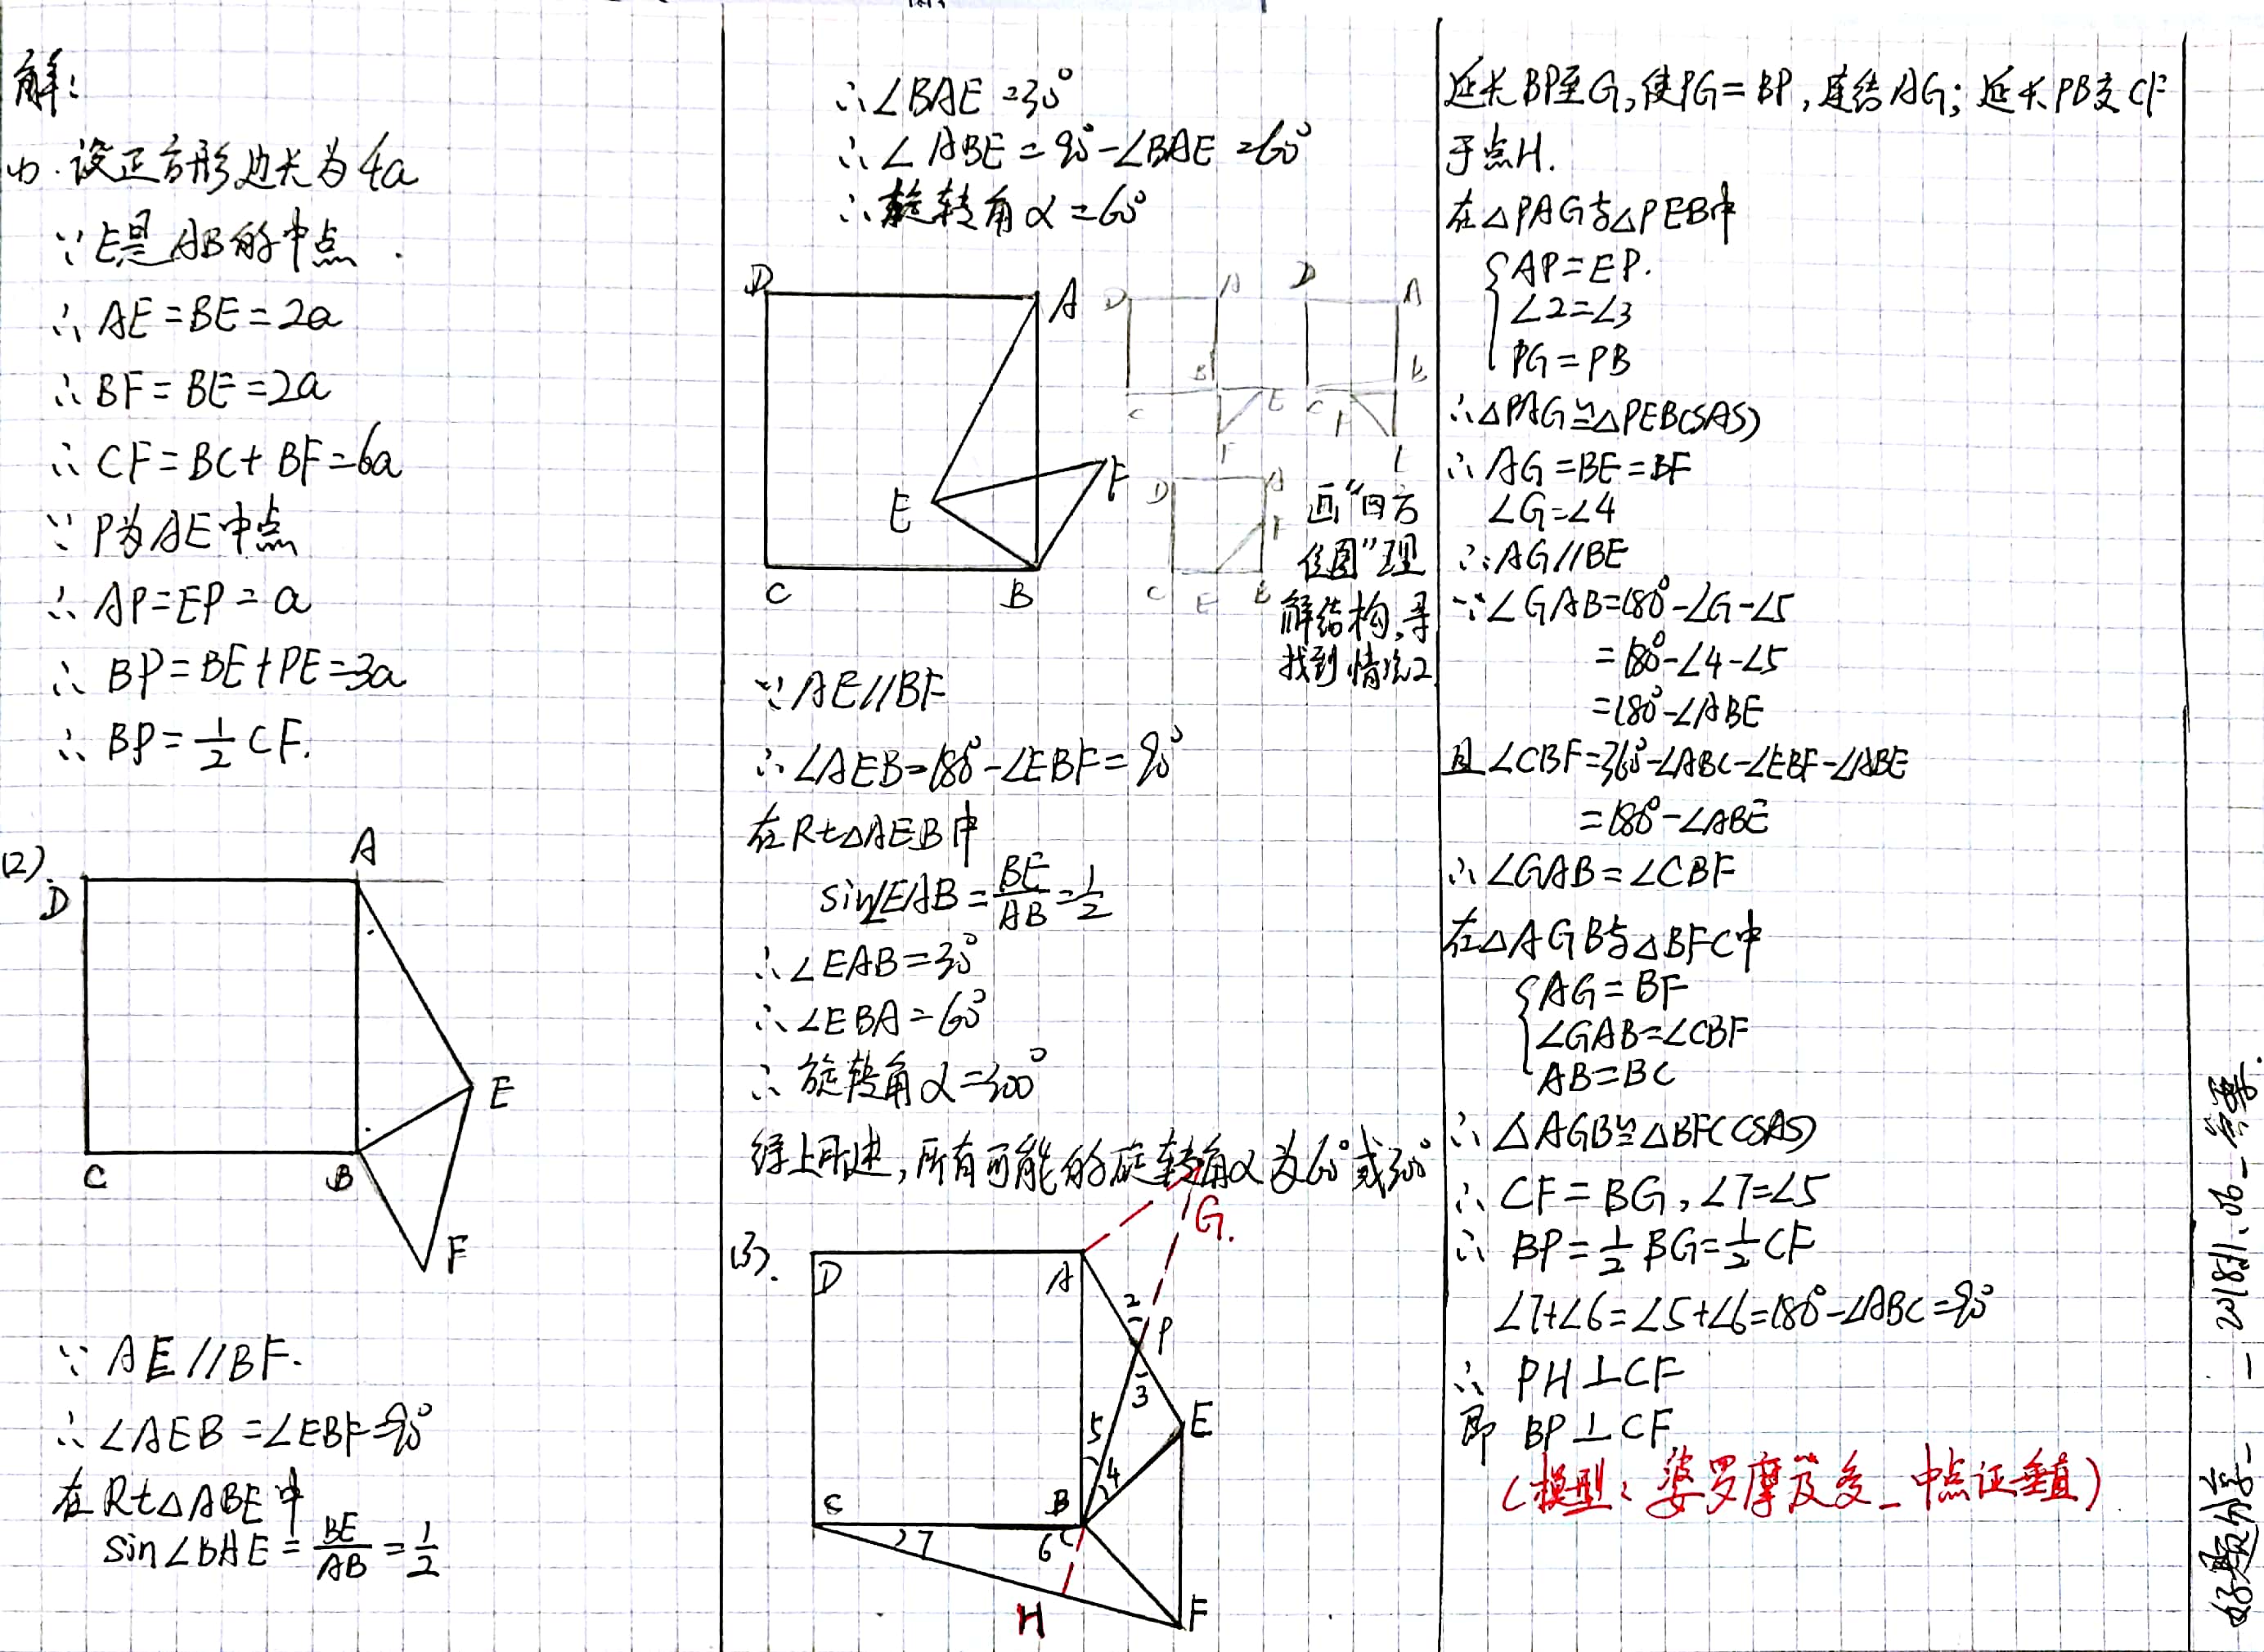 解:
(1). 设正方形边长为4a
∵ E是AB的中点.
∴ AE=BE=2a
∴ BF=BE=2a
∴ CF=BC+BF=6a
∵ P为AE中点
∴ AP=EP=a
∴ BP=BE+PE=3a
∴ BP=1/2 CF.
(2).
D A
E
C B
F
∵ AE//BF.
∴ ∠AEB=∠EBF=90°
在Rt△ABE中
sin∠BAE=BE/AB=1/2
∴∠BAE=30°
∴∠ABE=90°-∠BAE=60°
∴旋转角α=60°
D A
E F
C B
D A
B
C E
F
D A
C F B
E
D A
F
C E B
画"四方
位图"理
解结构,寻
找到情况2
∵AE//BF
∴∠AEB=180°-∠EBF=90°
在Rt△AEB中
sin∠EAB=BE/AB=1/2
∴∠EAB=30°
∴∠EBA=60°
∴旋转角α=300°
综上所述,所有可能的旋转角α为60°或300°
(3).
G.
D A
2
P
3
5 E
4
C B
7 6
H F
延长BP至G,使PG=BP,连结AG;延长PB交CF
于点H.
在△PAG与△PEB中
AP=EP.
∠2=∠3
PG=PB
∴△PAG≌△PEB(SAS)
∴AG=BE=BF
∠G=∠4
∴AG//BE
∵∠GAB=180°-∠G-∠5
=180°-∠4-∠5
=180°-∠ABE
且∠CBF=360°-∠ABC-∠EBF-∠ABE
=180°-∠ABE
∴∠GAB=∠CBF
在△AGB与△BFC中
AG=BF
∠GAB=∠CBF
AB=BC
∴△AGB≌△BFC(SAS)
∴CF=BG,∠7=∠5
∴BP=1/2 BG=1/2 CF
∠7+∠6=∠5+∠6=180°-∠ABC=90°
∴ PH⊥CF
即 BP⊥CF
(模型:婆罗摩笈多_中点证垂直)
好题分享